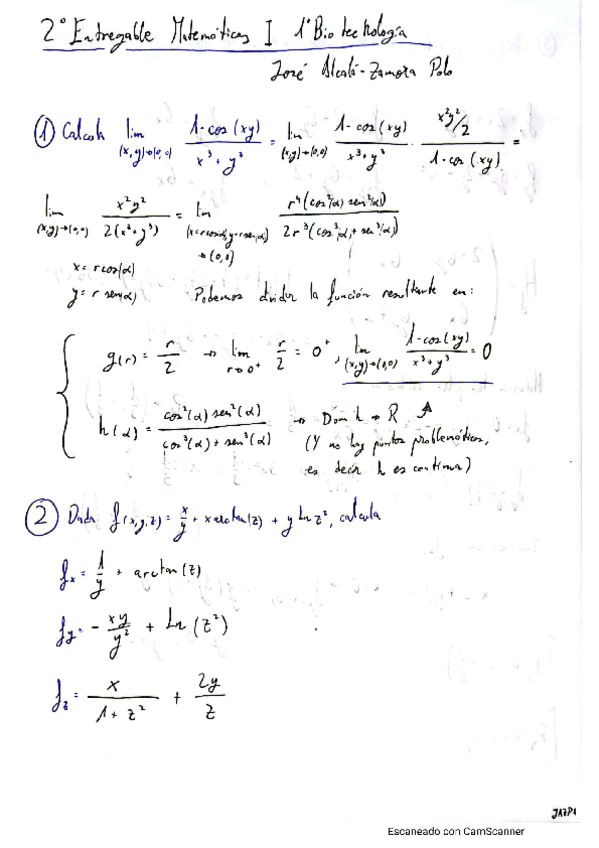 2º Entregable Matemáticas I 1º Biotecnología
José Alcalá-Zamora Polo
① Calcula lim (x,y)→(0,0) (1-cos(xy))/(x³+y³) = lim (x,y)→(0,0) (1-cos(xy))/(x³+y³) · (x²y²/2)/(1-cos(xy)) =
lim (x,y)→(0,0) x²y²/(2(x³+y³)) = lim (x=rcos(α), y=rsen(α))→(0,0) r⁴(cos²(α) sen²(α))/(2r³(cos³(α)+sen³(α)))
x = r cos(α)
y = r sen(α) Podemos dividir la función resultante en:
g(r) = r/2 → lim r→0⁺ r/2 = 0⁺, lim (x,y)→(0,0) (1-cos(xy))/(x³+y³) = 0
h(α) = (cos²(α) sen²(α))/(cos³(α)+sen³(α)) → Dom h → R
(Y no hay puntos problemáticos,
es decir h es continua)
② Dada f(x,y,z) = x/y + x arctan(z) + y Ln z², calcula
fx = 1/y + arctan(z)
fy = - xy/y² + Ln(z²)
fz = x/(1+z²) + 2y/z
JAZP1
Escaneado con CamScanner